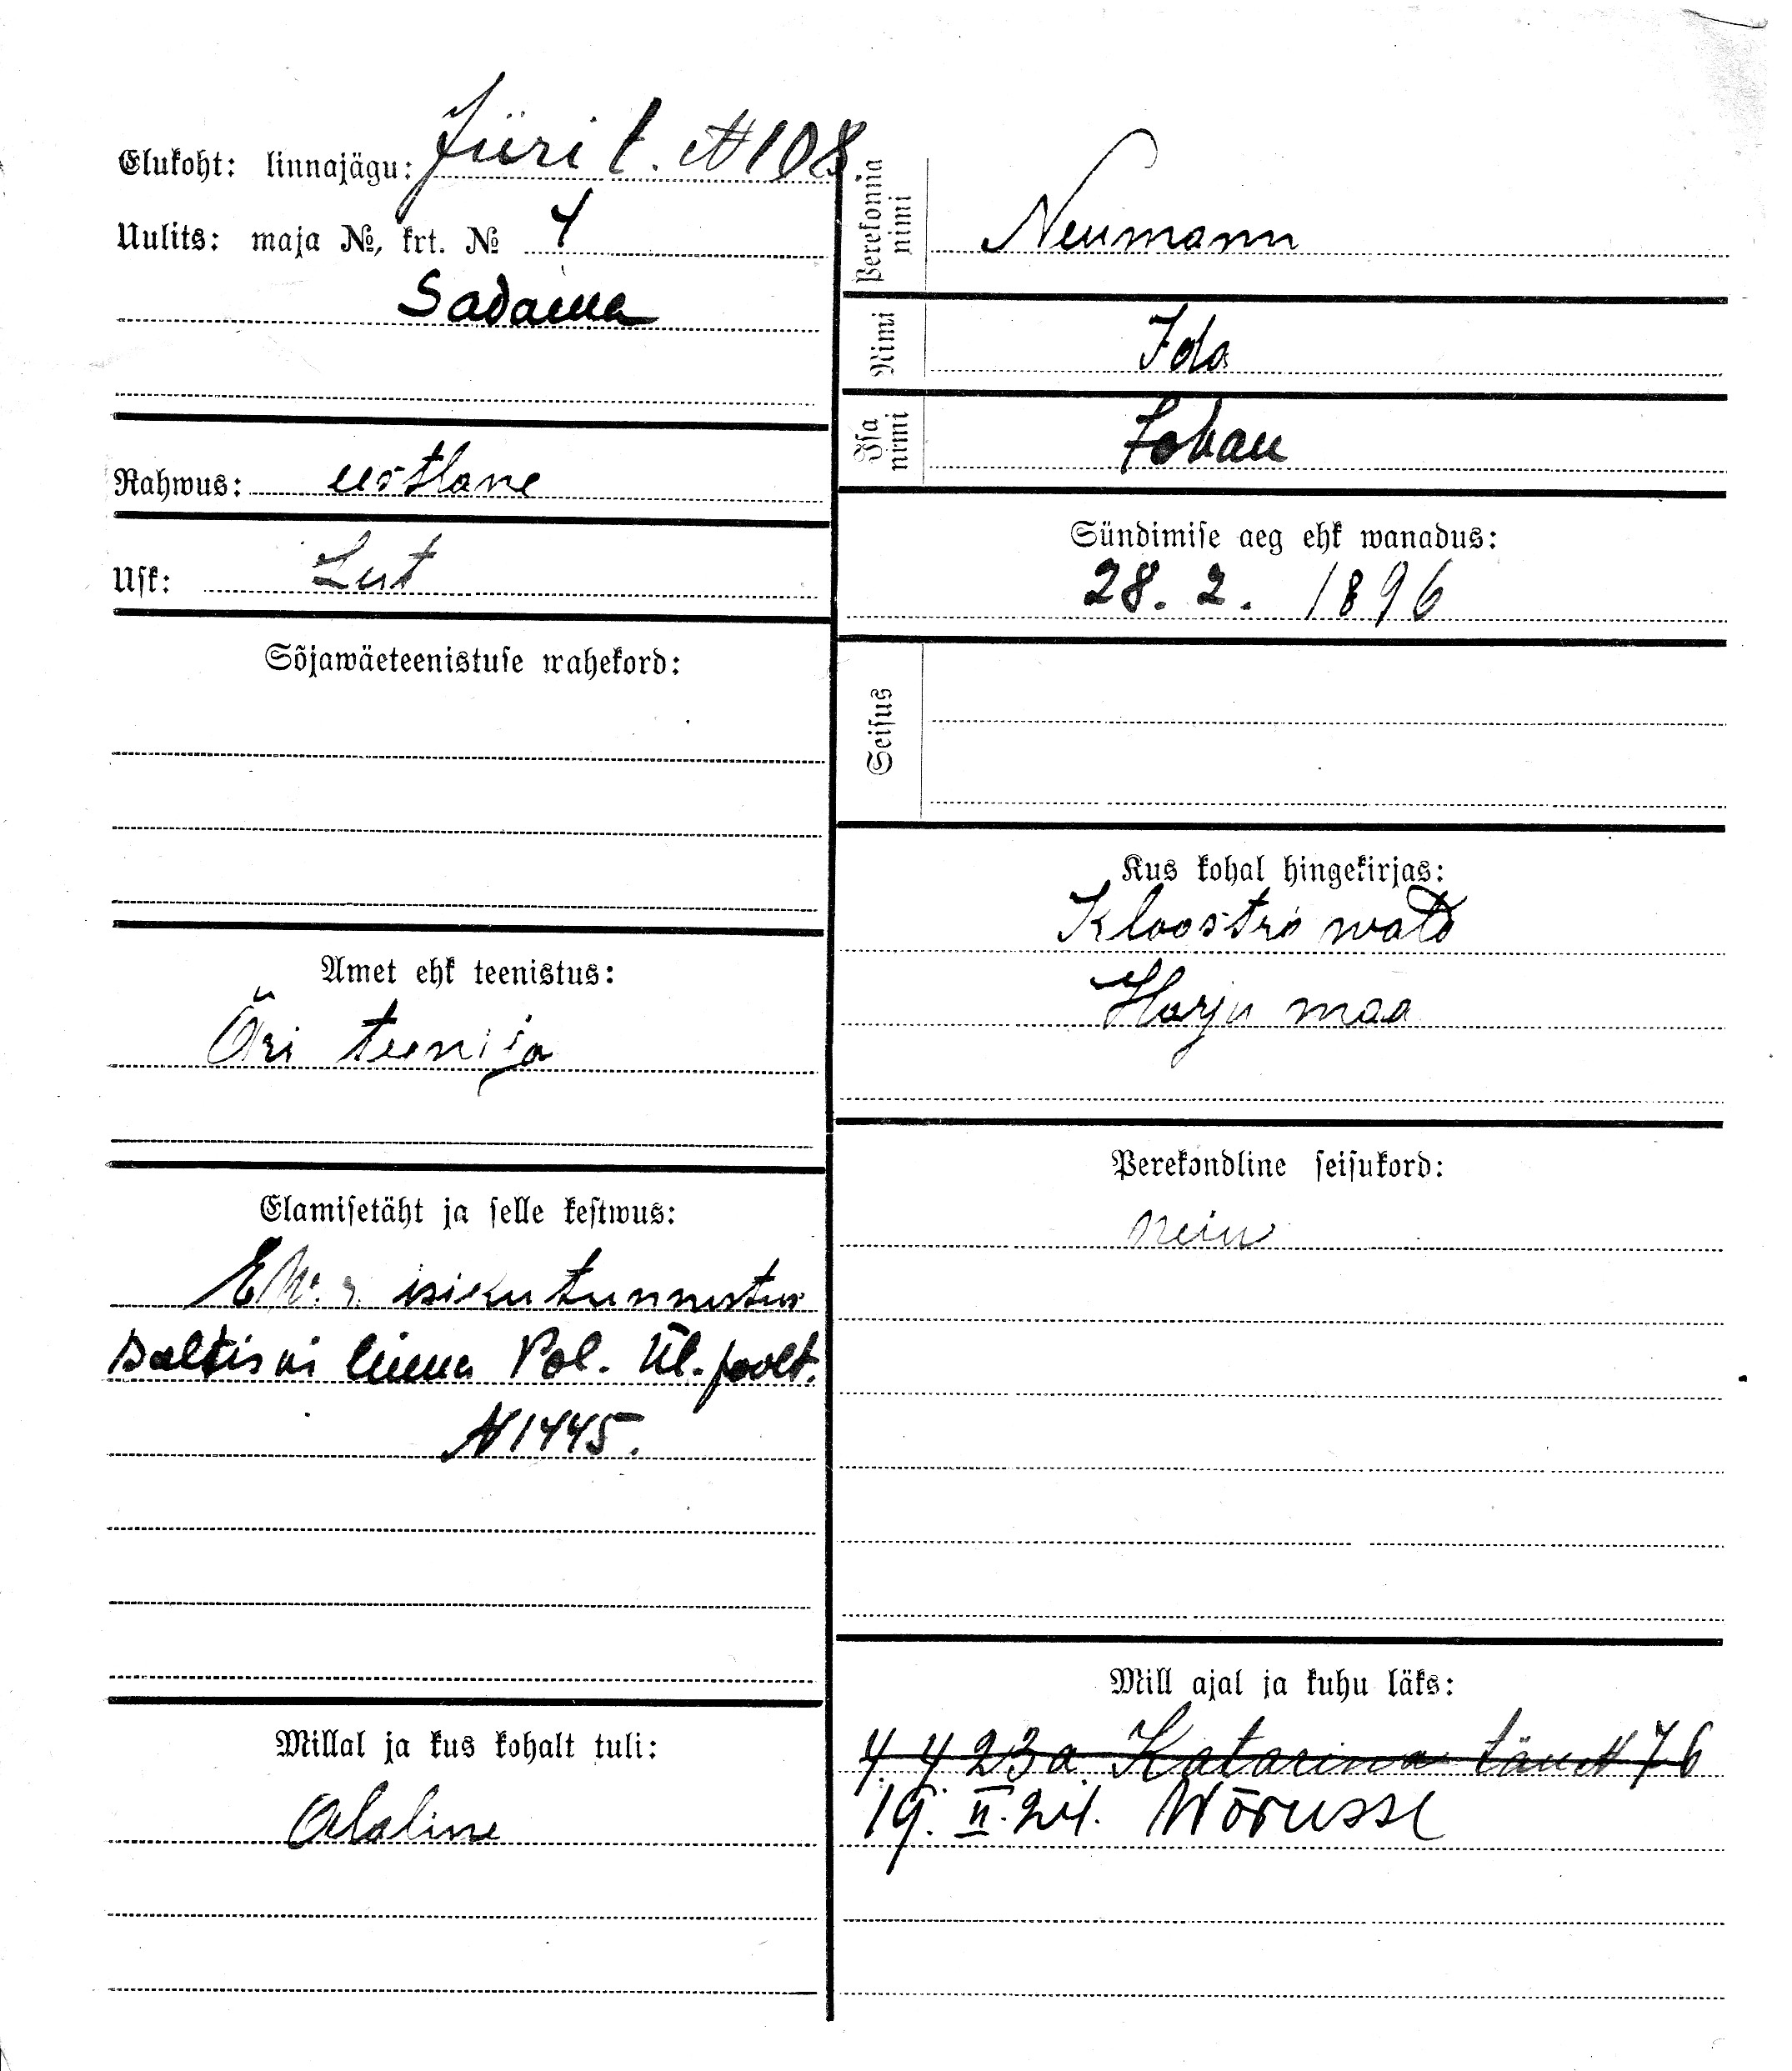 Elukoht: linnajägu: Jüri t. № 108
Uulits: maja №, krt. № 4
Sadama
Rahwus: eestlane
Usk: Lut
Sõjawäeteenistuse wahekord:
Amet ehk teenistus:
Äri teenija
Elamisetäht ja selle kestwus:
isiku tunnistus
Baltiski linna Pol. Ül. poolt.
№ 1445.
Millal ja kus kohalt tuli:
Alaline
Perekonna nimi
Neumann
Nimi
Ida
Isa nimi
Johan
Sündimise aeg ehk wanadus:
28. 2. 1896
Seisus
Kus kohal hingekirjas:
Kloostri wald
Harju maa
Perekondline seisukord:
neiu
Mill ajal ja kuhu läks:
4. 4. 23 a. Katarina tän № 76
19. II. 24. Wõrusse